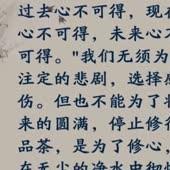 过去心不可得，现
心不可得，未来心不
可得。"我们无须为
注定的悲剧，选择感
伤。但也不能为了将
来的圆满，停止修行
品茶，是为了修心，
在无尘的净水中彻悟